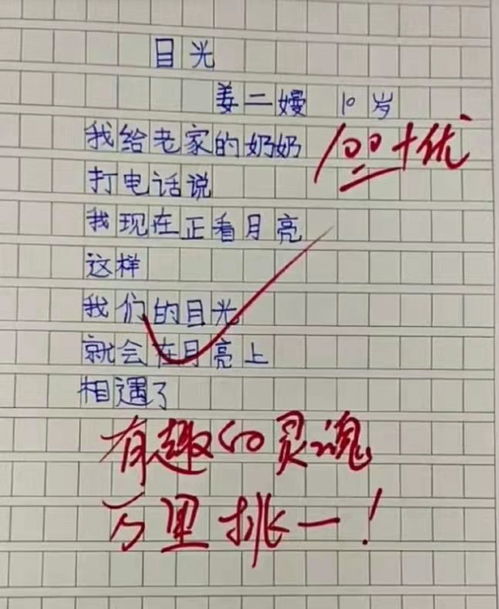 目光
姜二嫚 10岁
100+优
我给老家的奶奶
打电话说
我现在正看月亮
这样
我们的目光
就会在月亮上
相遇了
有趣的灵魂
万里挑一!